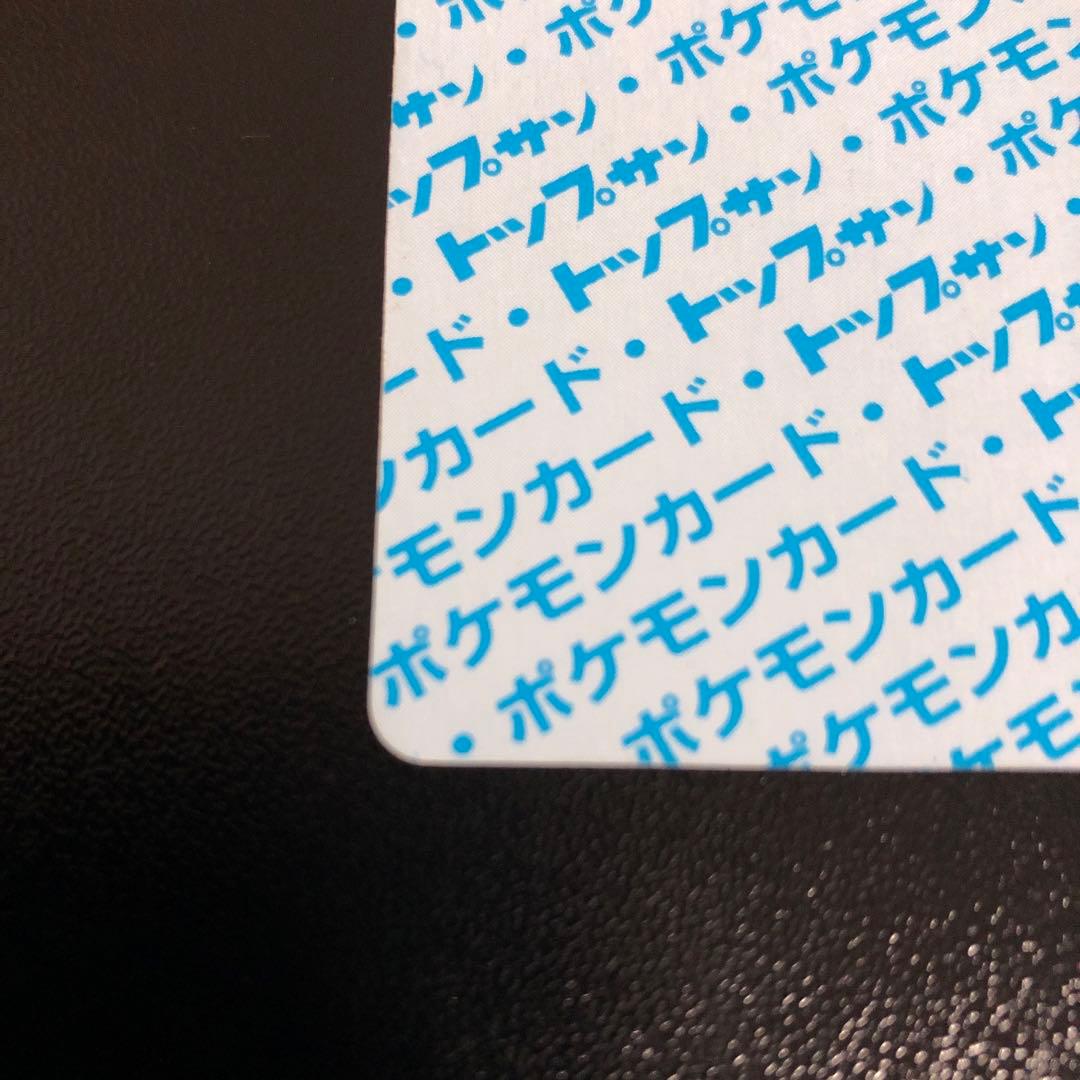 ・ポ
サン・ポケ
ップサン・ポケモ
・トップサン・ポケモン
ード・トップサン・ポケモン
ンカード・トップサン・ポケ
モンカード・トップサン・
ポケモンカード・トップサ
・ポケモンカード・ト
ポケモンカード
ポケモンカ
ケモ